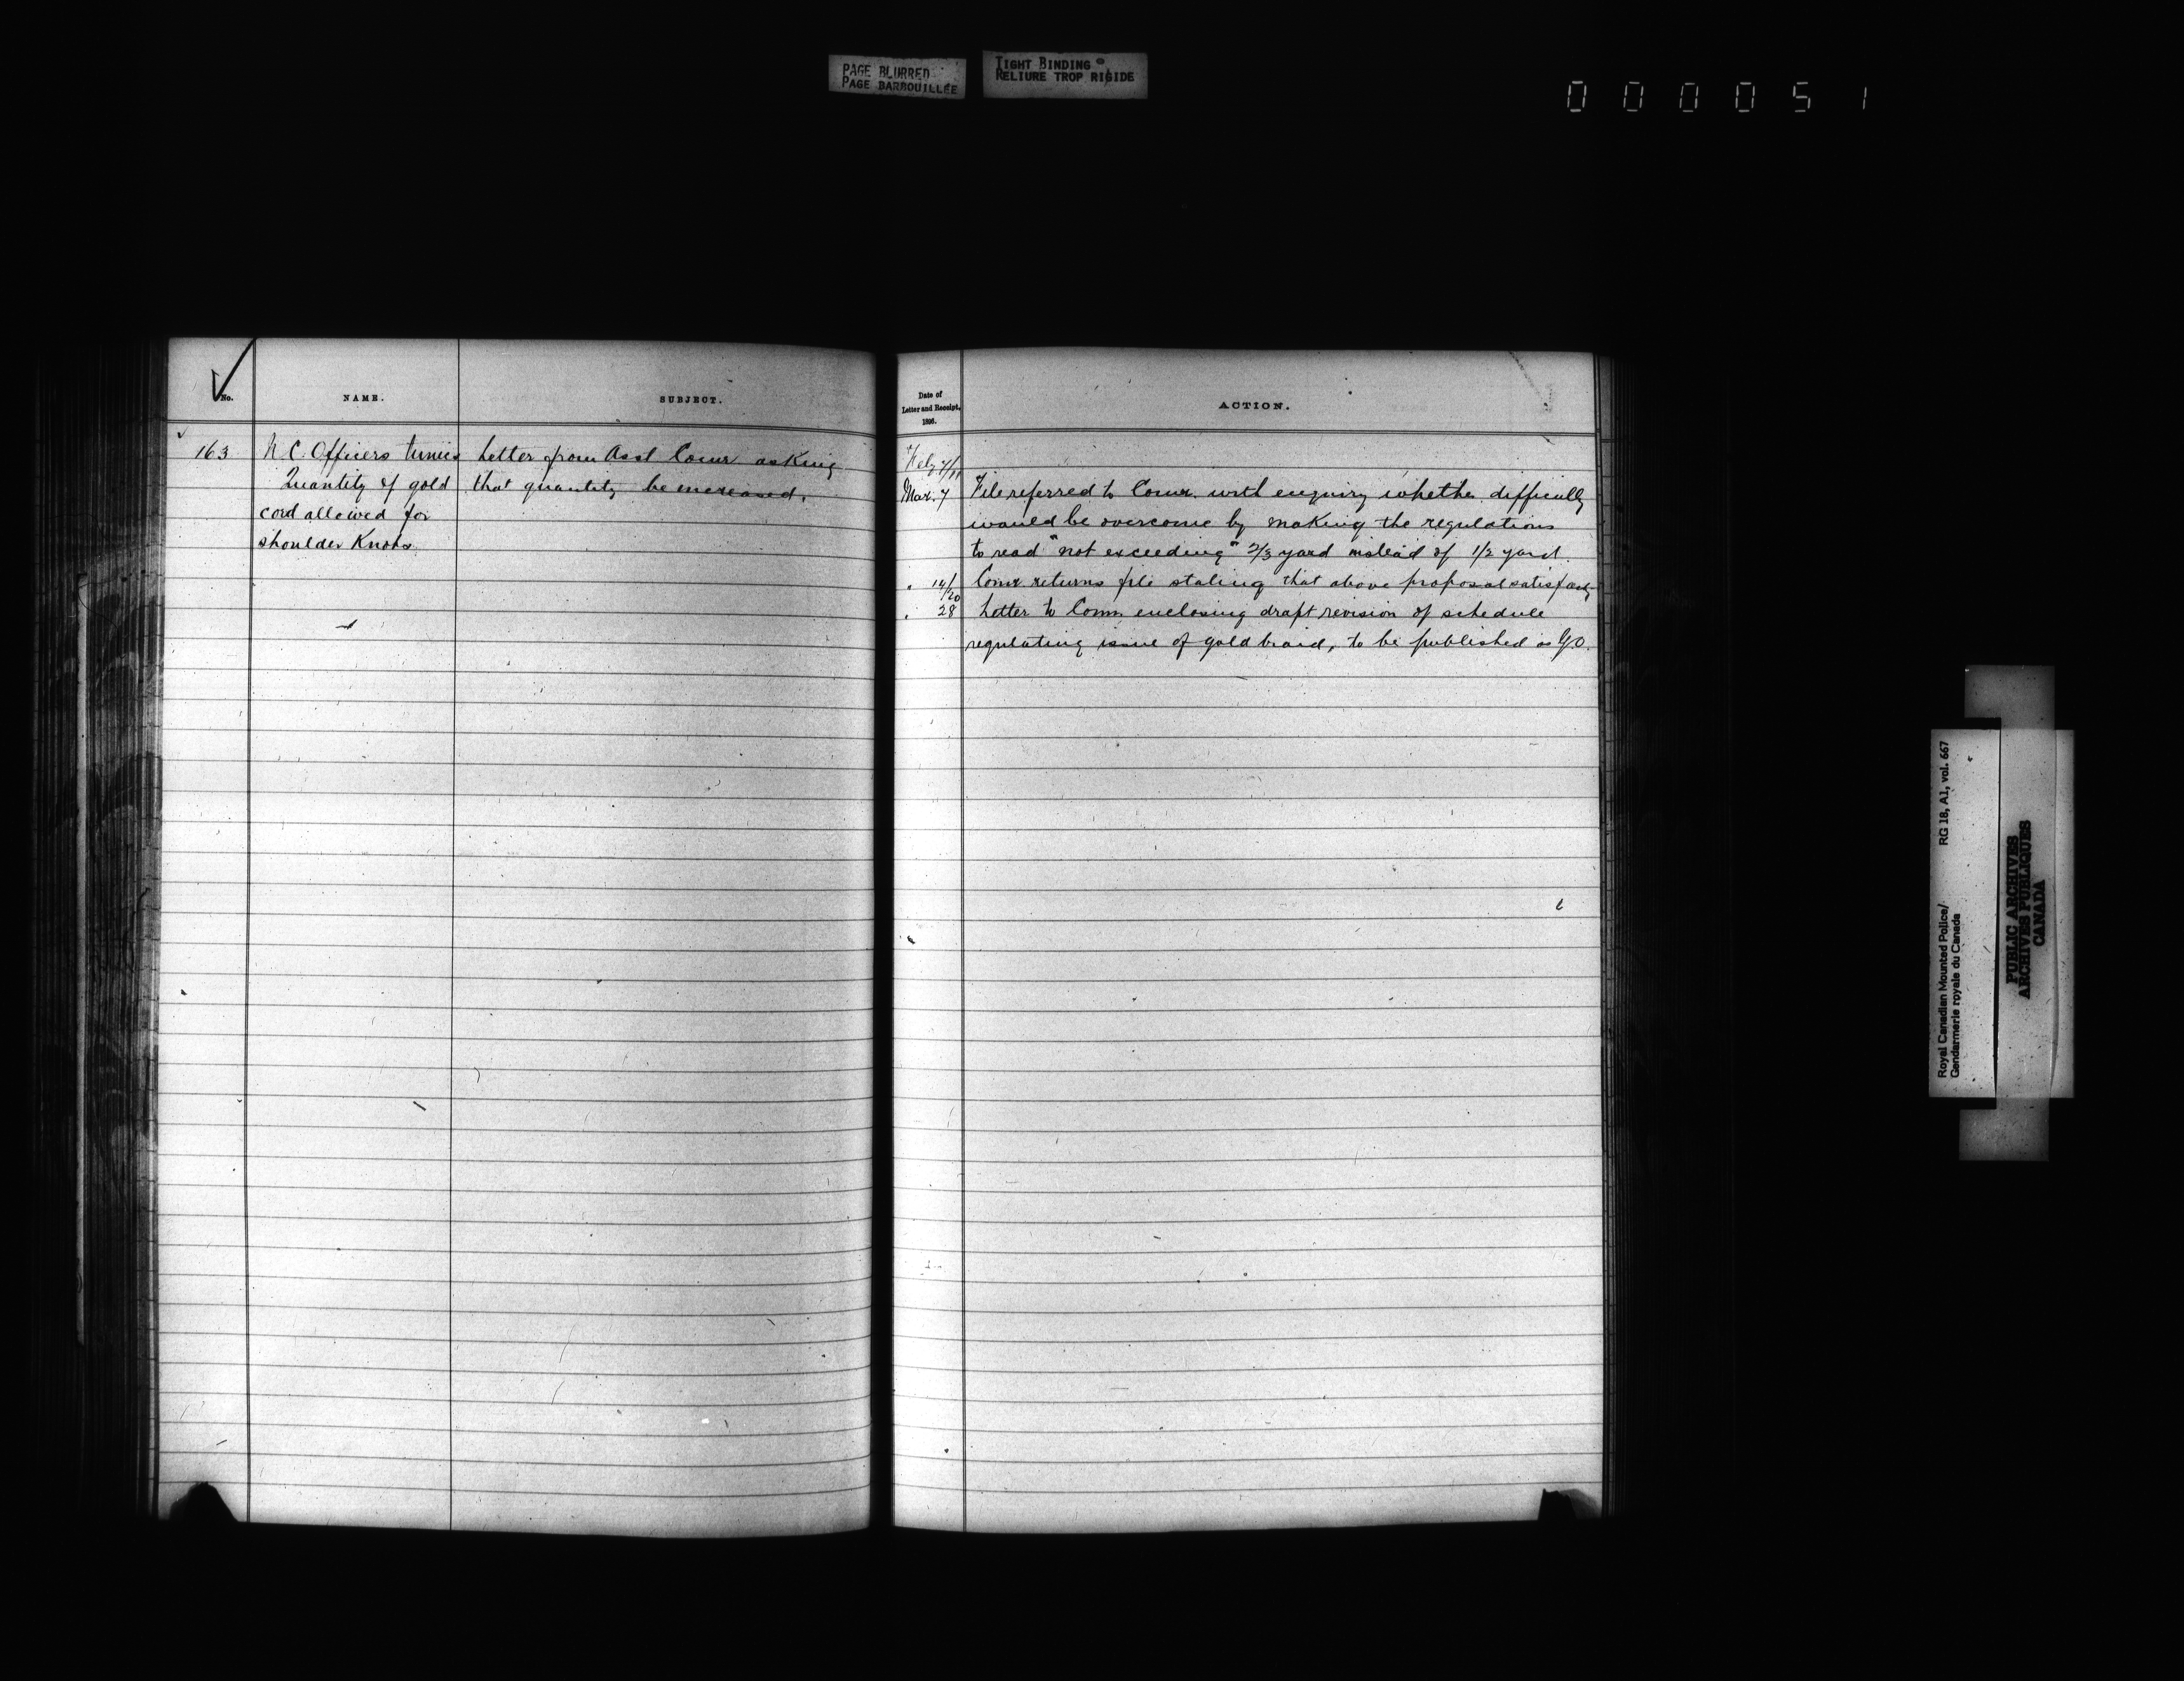 PAGE BLURRED
PAGE BARBOUILLÉE
TIGHT BINDING
RELIURE TROP RIGIDE
000051
No.
NAME.
SUBJECT.
163
N.C. Officers tunics
Quantity of gold
cord allowed for
shoulder Knots.
Letter from Asst Comr asking
that quantity be increased.
Date of
Letter and Receipt,
1896.
ACTION.
Feby 7/11
Mar. 7 File referred to Comr. with enquiry whether difficulty
would be overcome by making the regulations
to read "not exceeding" 2/3 yard instead of 1/2 yard.
" 14/20 Comr. returns file stating that above proposal satisfacty
" 28 Letter to Comr. enclosing draft revision of schedule
regulating issue of gold braid, to be published as G.O.
Royal Canadian Mounted Police/ RG 18, A1, vol. 667
Gendarmerie royale du Canada
PUBLIC ARCHIVES
ARCHIVES PUBLIQUES
CANADA